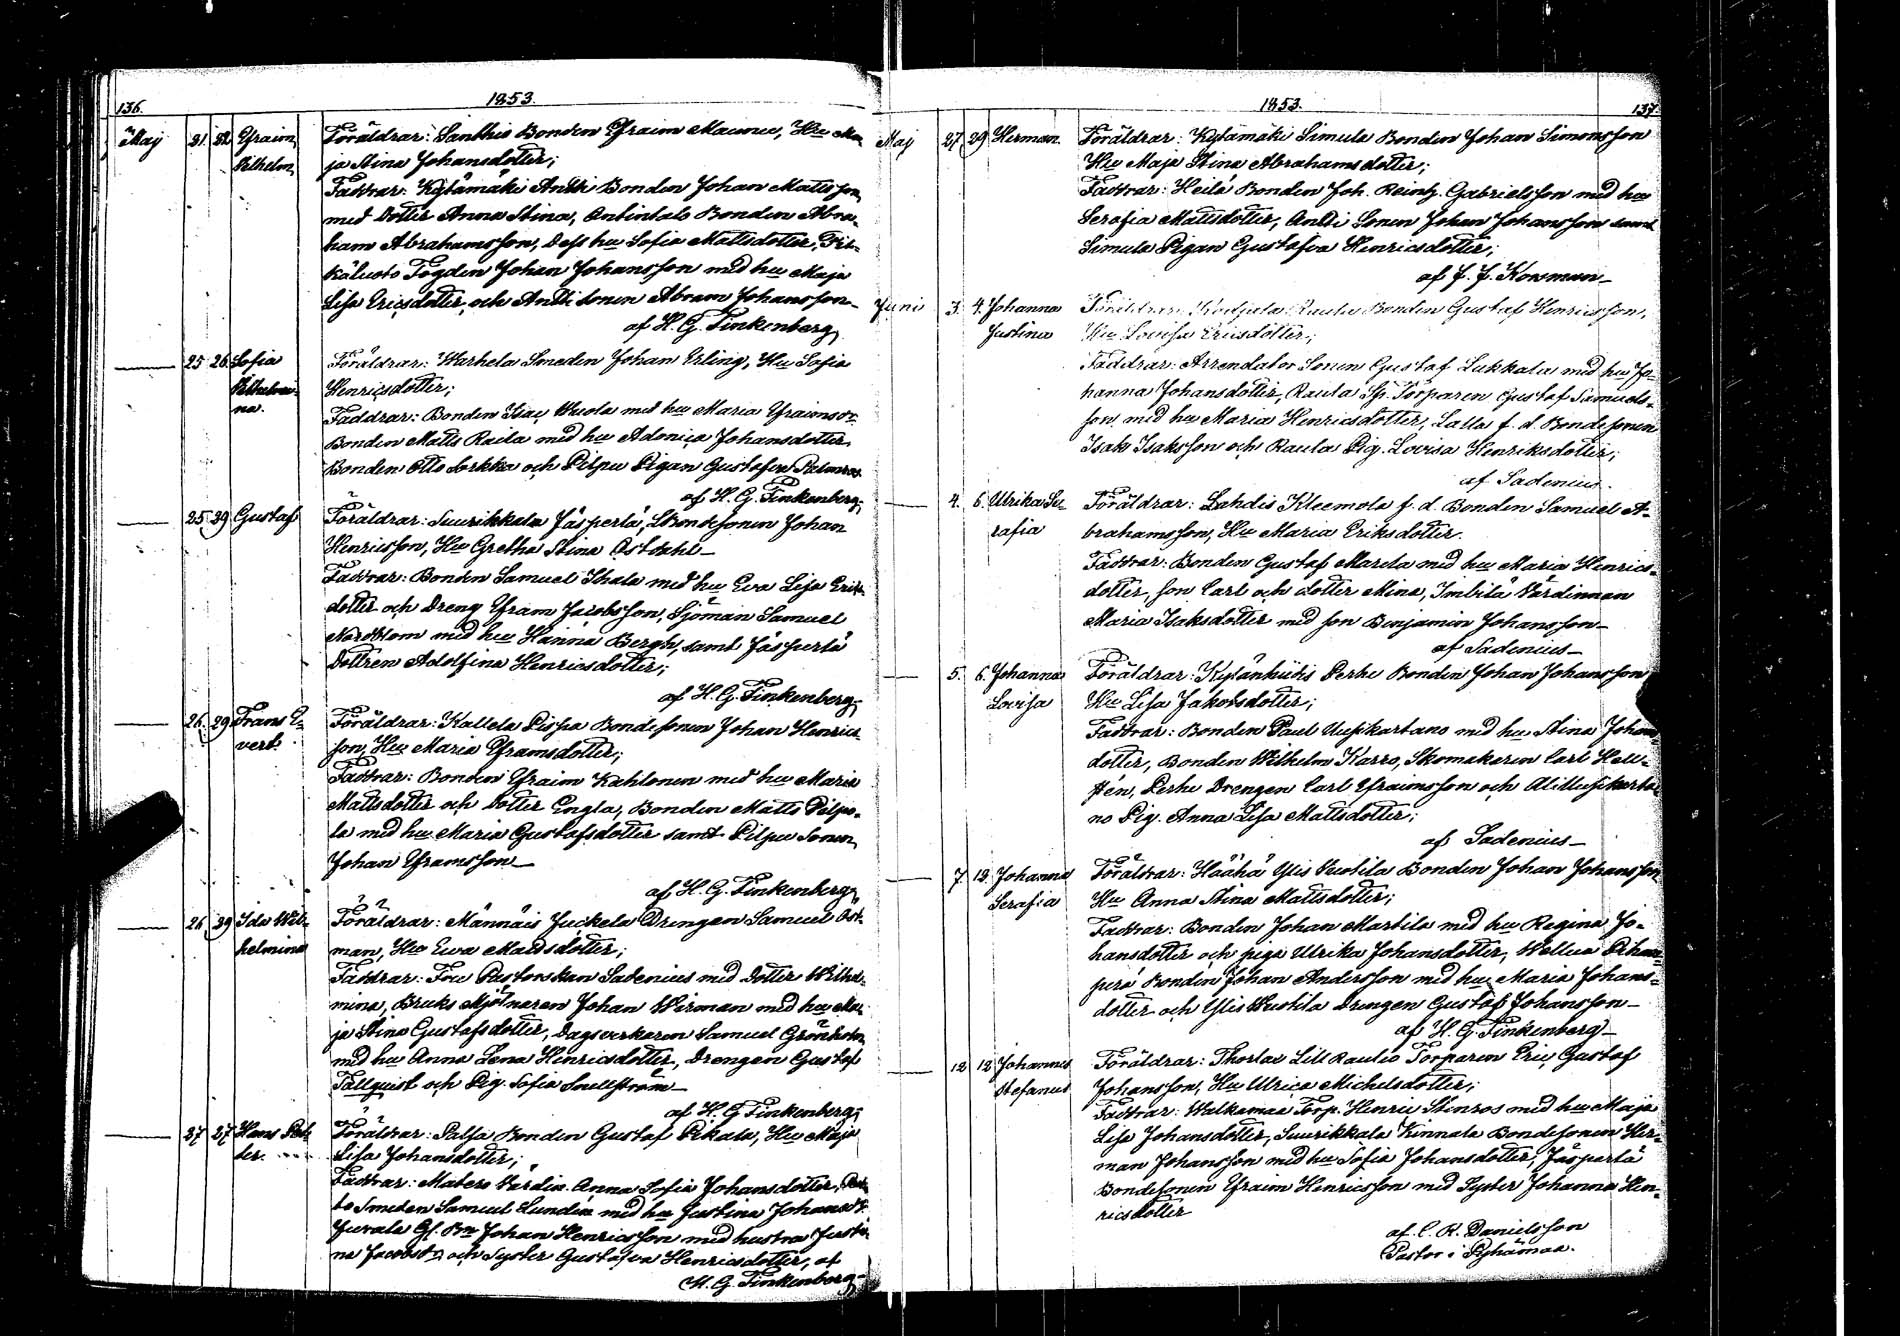 136.
1853.
May 21. 22. Efraim Föräldrar: Santtis Bonden Efraim Maunu, Hu Ma-
Vilhelm ja Stina Johansdotter;
Faddrar: Kylämäki Antti Bonden Johan Mattsson
med dotter Anna Stina, Antintalo Bonden Abra-
ham Abrahamsson, dess hu Sofia Mattsdotter,
Fogden Johan Johansson med hu Maja
Lisa Ericsdotter och Antti Sonen Abram Johansson
af H. G. Finkenberg
25 26. Sofia Föräldrar: Smeden Johan Erling, Hu Sofia
Vilhelmi- Henricsdotter;
na. Faddrar: Bonden Isac Wuola med hu Maria Efraimsdr
Bonden Matts Raila med hu Adonica Johansdotter
Bonden Otto Sorkka och Pilpu Pigan Gustafva
af H. G. Finkenberg.
25. 29 Gustaf Föräldrar: Suurikkala Jäsperlä, Johan
Henricsson, Hu Gretha Stina
Faddrar: Bonden Samuel Ihala med hu Eva Lisa Eriks
dotter och Dreng Efraim Jacobsson, Sjöman Samuel
Nordblom med hu Hanna Bergh, samt Jäsperlä
Dottren Adolfina Henricsdotter;
af H. G. Finkenberg.
26. 29 Frans E- Föräldrar: Kallela Pissa Bondesonen Johan Henrics-
vert. son, Hu Maria Eframsdotter;
Faddrar: Bonden Efraim Kahlonen med hu Maria
Mattsdotter och dotter Engla, Bonden Matts Pilpo-
la med hu Maria Gustafsdotter samt Pilpu Sonen
Johan Eframsson
af H. G. Finkenberg
26 29 Ida Wil- Föräldrar: Männäis Juckela Drengen Samuel Öst-
helmina man, Hu Eva Mattsdotter;
Faddrar: Fru Pastorskan Sadenius med dotter Wilhel-
mina, Bruks Mjölnaren Johan Wirman med hu Ma-
ja Stina Gustafsdotter, Dagsverkaren Samuel Grönholm
med hu Anna Lena Henricsdotter, Drengen Gustaf
Tallquist och Pig. Sofia Snellström
af H. G. Finkenberg;
27 27 Hans Pet- Föräldrar: Salja Bonden Gustaf Pikala, Hu Maja
ter. Lisa Johansdotter;
Faddrar: Värdin. Anna Sofia Johansdotter,
Smeden Samuel Lundin med hu Justina Johansdr
Juvala Johan Henricsson med hustru Justi-
na Jacobsdr och Syster Gustafva Henricsdotter, af
H. G. Finkenberg
1853.
137.
May 27 29 Herman Föräldrar: Kylämäki Simula Bonden Johan Simonsson
Hu Maja Stina Abrahamsdotter;
Faddrar: Heilä Bonden Joh. Reinh. Gabrielsson med hu
Serafia Mattsdotter, Antti Sonen Johan Johansson samt
Simula Pigan Gustafva Henricsdotter;
af J. J. Korsman
Juni 3. 4. Johanna Föräldrar: Kodjala Raula Bonden Gustaf Henricsson,
Justina Hu Lovisa Ericsdotter;
Faddrar: Arrendator Sonen Gustaf Lukkala med hu Jo-
hanna Johansdotter, Raula Sp. Torparen Gustaf Samuels-
son, med hu Maria Henricsdotter, Lalla f. d. Bondesonen
Isak Isaksson och Raula Pig. Lovisa Henriksdotter;
af Sadenius.
4. 6. Ulrika Se- Föräldrar: Lahdis Kleemola f. d. Bonden Samuel A-
rafia brahamsson, Hu Maria Eriksdotter.
Faddrar: Bonden Gustaf Marila med hu Maria Henrics-
dotter, son Carl och dotter Mina, Imbilä Värdinnan
Maria Isaksdotter med son Benjamin Johansson
af Sadenius
5. 6. Johanna Föräldrar: Kylänhiihi Perhe Bonden Johan Johansson
Lovisa Hu Lisa Jakobsdotter;
Faddrar: Bonden Paul Uusikartano med hu Stina Johans-
dotter, Bonden Wilhelm Karro, Skomakeren Carl Hell-
stén, Perhe Drengen Carl Efraimsson och
no Pig. Anna Lisa Mattsdotter;
af Sadenius
7. 12. Johanna Föräldrar: Haaha Ylis Bonden Johan Johansson
Serafia Hu Anna Stina Mattsdotter;
Faddrar: Bonden Johan Martila med hu Regina Jo-
hansdotter och piga Ulrika Johansdotter, Wellua
Bonden Johan Andersson med hu Maria Johans-
dotter och Ylis Drengen Gustaf Johansson
af H. G. Finkenberg
12 12 Johannes Föräldrar: Thorlax Lill Rautio Torparen Eric Gustaf
Stefanus Johansson, Hu Ulrica Michelsdotter;
Faddrar: Walkamaa Torp. Henric Stenros med hu Maja
Lisa Johansdotter, Suurikkala Kinnala Bondesonen Her-
man Johansson med hu Sofia Johansdotter, Jäsperlä
Bondesonen Efraim Henricsson med Syster Johanna Hen-
ricsdotter
af C. R. Danielsson
Pastor i Pyhämaa.